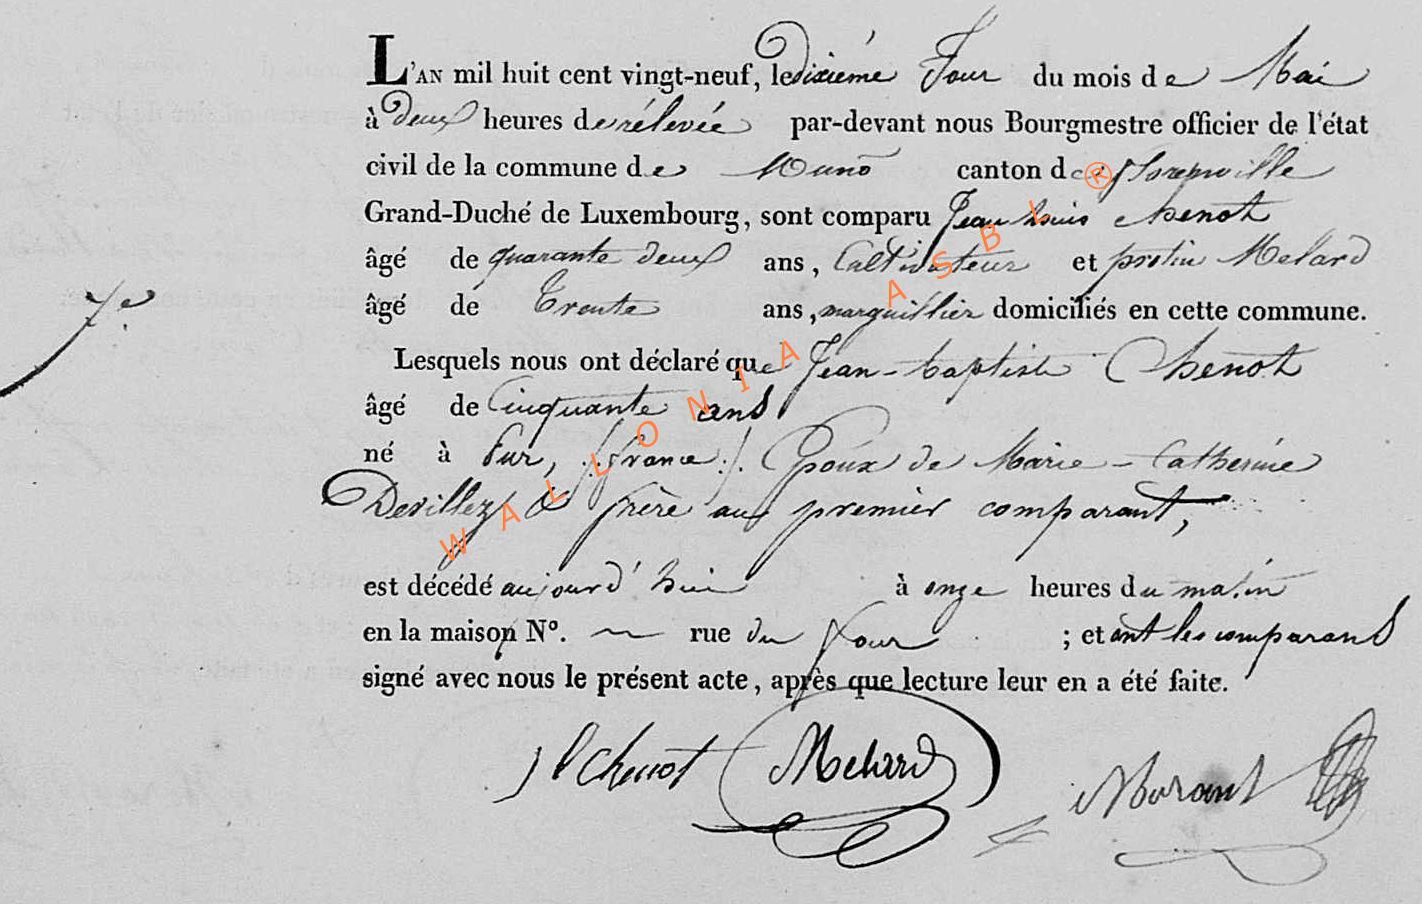 L'AN mil huit cent vingt-neuf, le dixiéme Jour du mois de Mai
à deux heures de rélevée par-devant nous Bourgmestre officier de l'état
civil de la commune de Muno canton de florenville
Grand-Duché de Luxembourg, sont comparu Jean Louis Chenot
âgé de quarante deux ans, Cultivateur et protin Melard
âgé de Trente ans, marguillier domiciliés en cette commune.
7e
Lesquels nous ont déclaré que Jean-baptiste Chenot
âgé de Cinquante ans
né à Pur, /:france:/. Epoux de Marie-Catherine
Devillez & frère au premier comparant,
est décédé aujourd'hui à onze heures du matin
en la maison N°. rue du four ; et ont les comparans
signé avec nous le présent acte, après que lecture leur en a été faite.
J l Chenot Melard Morant
WALLONIA ASBL ®